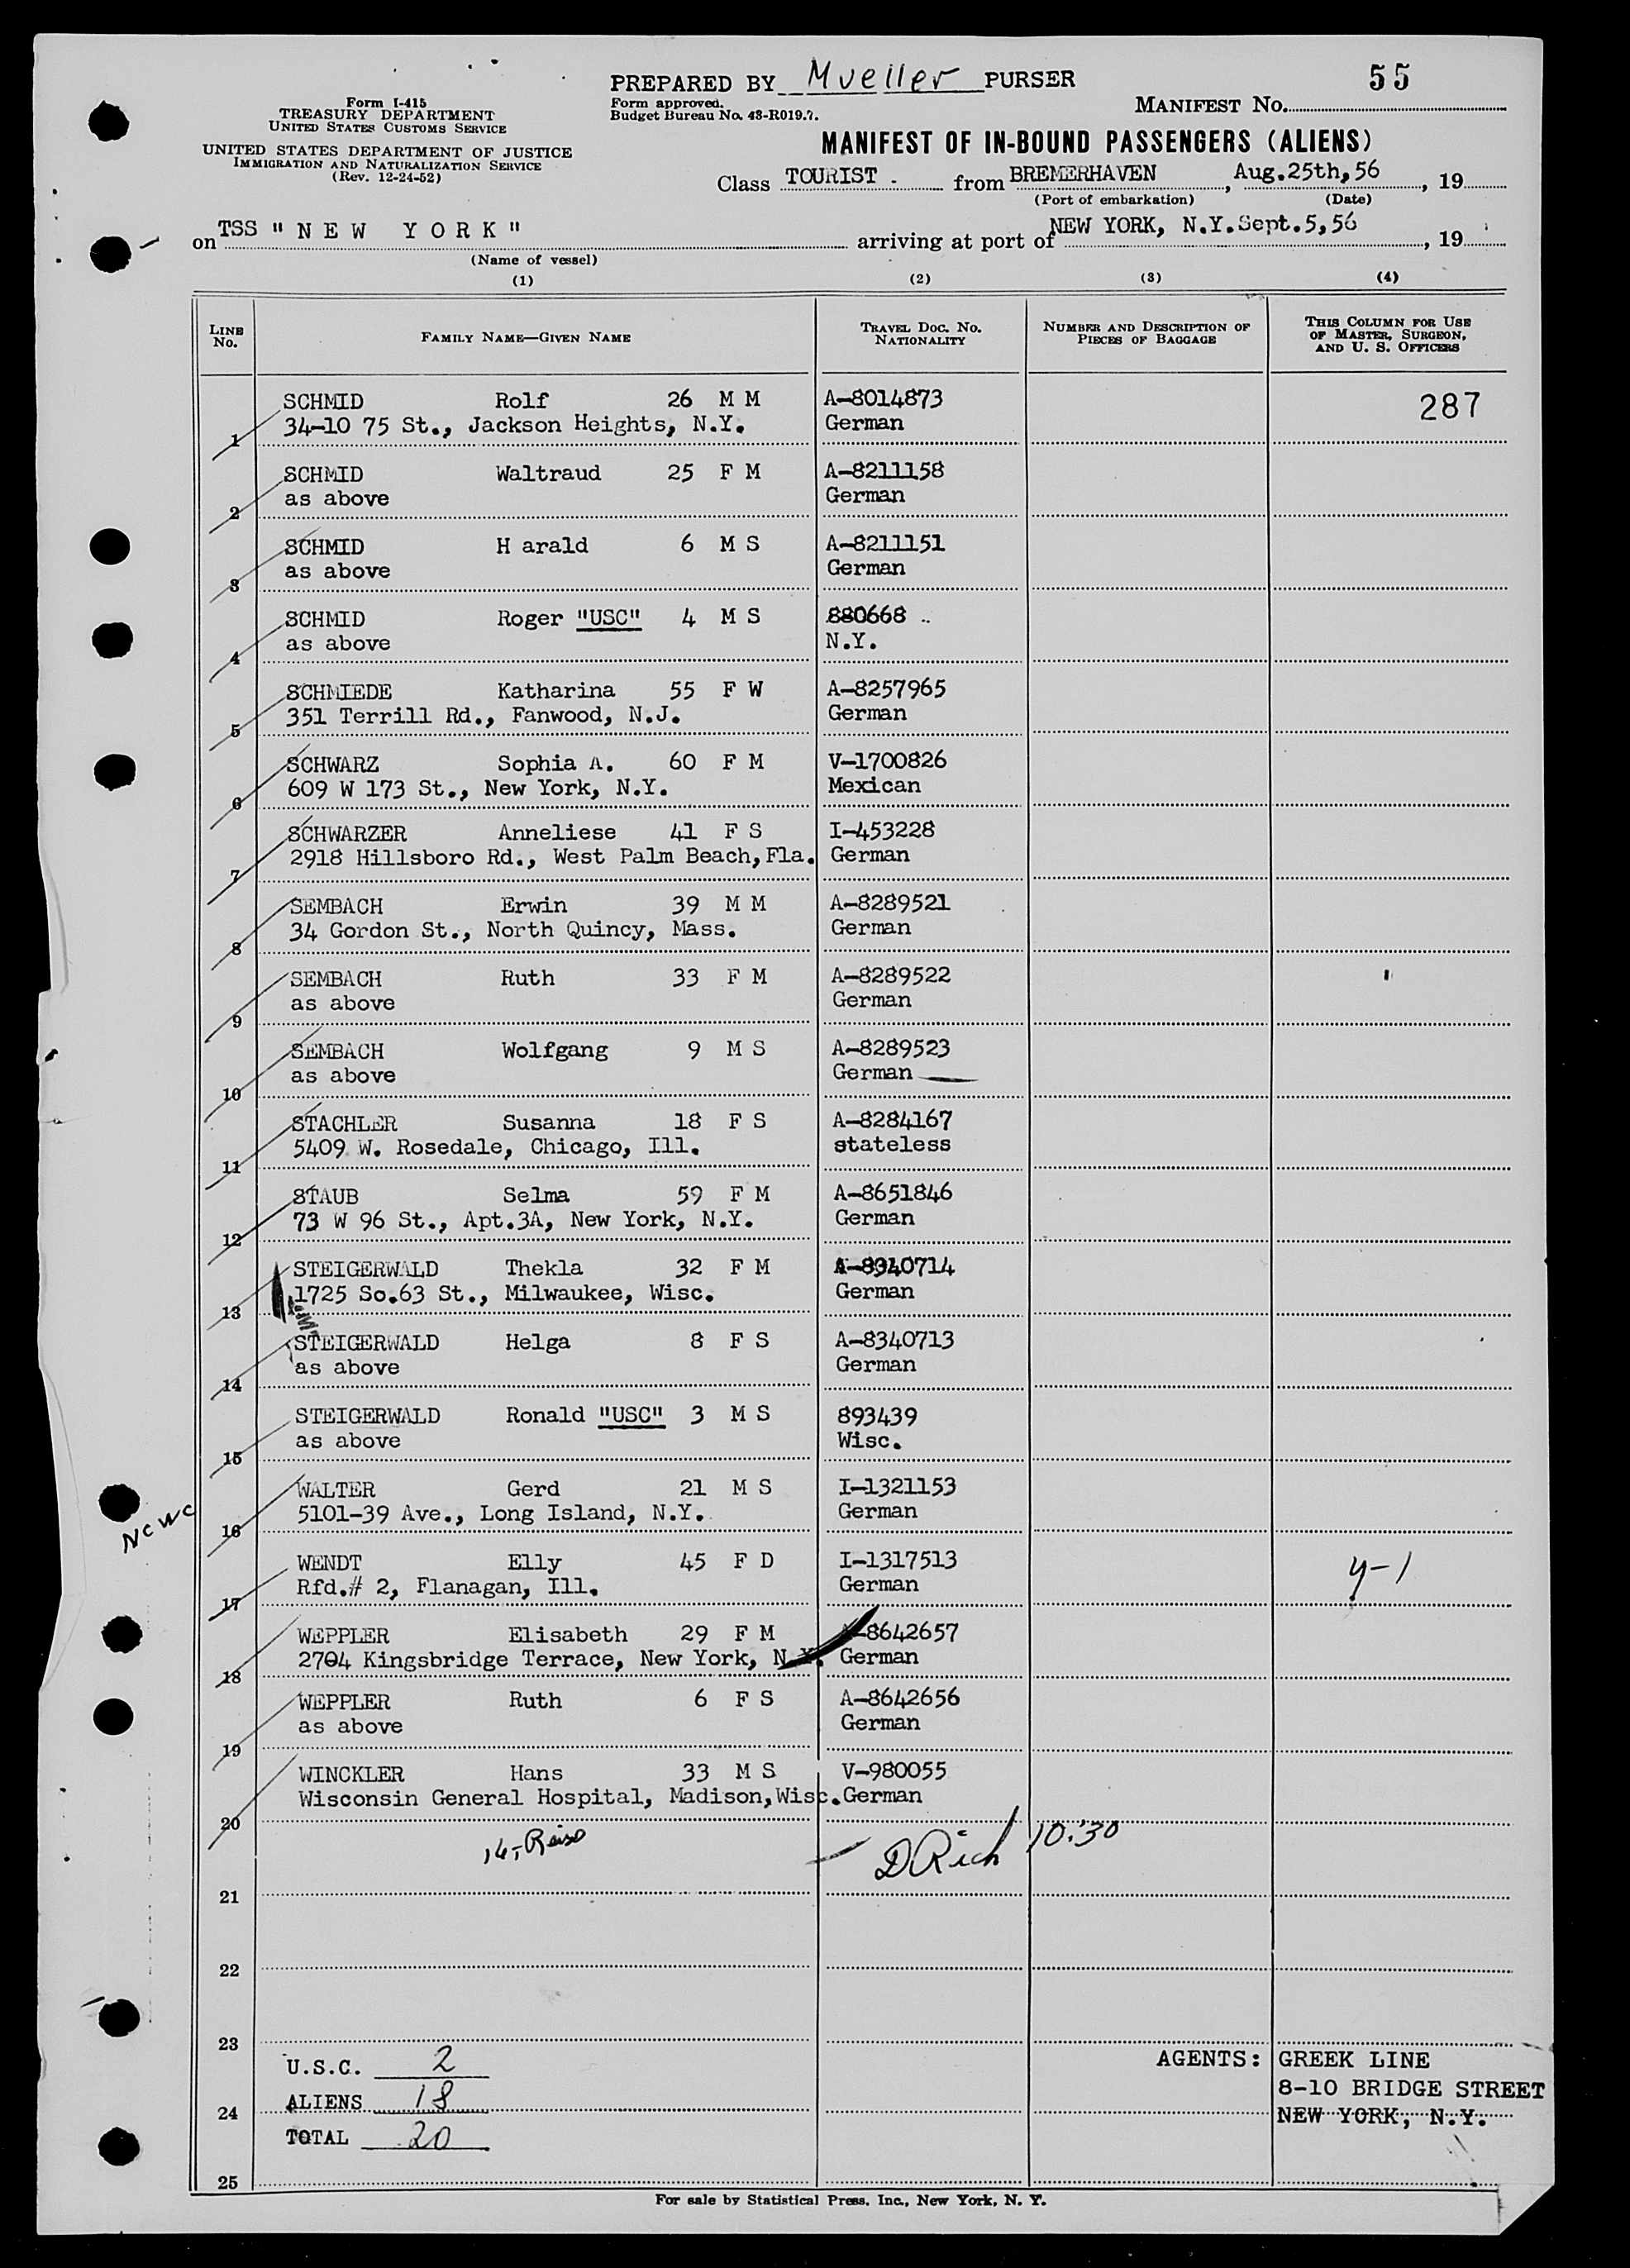 PREPARED BY Mueller PURSER
55
Form I-415
TREASURY DEPARTMENT
UNITED STATES CUSTOMS SERVICE
Form approved.
Budget Bureau No. 43-R019.7.
MANIFEST No.
UNITED STATES DEPARTMENT OF JUSTICE
IMMIGRATION AND NATURALIZATION SERVICE
(Rev. 12-24-52)
MANIFEST OF IN-BOUND PASSENGERS (ALIENS)
Class TOURIST - from BREMERHAVEN, Aug.25th,56, 19
(Port of embarkation) (Date)
on TSS " N E W Y O R K " arriving at port of NEW YORK, N.Y.Sept.5,56, 19
(Name of vessel)
(1) (2) (3) (4)
LINE No. FAMILY NAME—GIVEN NAME TRAVEL DOC. NO. NATIONALITY NUMBER AND DESCRIPTION OF PIECES OF BAGGAGE THIS COLUMN FOR USE OF MASTER, SURGEON, AND U. S. OFFICERS
SCHMID Rolf 26 M M A-8014873 287
1 34-10 75 St., Jackson Heights, N.Y. German
SCHMID Waltraud 25 F M A-8211158
2 as above German
SCHMID H arald 6 M S A-8211151
3 as above German
SCHMID Roger "USC" 4 M S 880668
4 as above N.Y.
SCHMIEDE Katharina 55 F W A-8257965
5 351 Terrill Rd., Fanwood, N.J. German
SCHWARZ Sophia A. 60 F M V-1700826
6 609 W 173 St., New York, N.Y. Mexican
SCHWARZER Anneliese 41 F S I-453228
7 2918 Hillsboro Rd., West Palm Beach,Fla. German
SEMBACH Erwin 39 M M A-8289521
8 34 Gordon St., North Quincy, Mass. German
SEMBACH Ruth 33 F M A-8289522
9 as above German
SEMBACH Wolfgang 9 M S A-8289523
10 as above German
STACHLER Susanna 18 F S A-8284167
11 5409 W. Rosedale, Chicago, Ill. stateless
STAUB Selma 59 F M A-8651846
12 73 W 96 St., Apt.3A, New York, N.Y. German
STEIGERWALD Thekla 32 F M A-8340714
13 1725 So.63 St., Milwaukee, Wisc. German
STEIGERWALD Helga 8 F S A-8340713
14 as above German
STEIGERWALD Ronald "USC" 3 M S 893439
15 as above Wisc.
WALTER Gerd 21 M S I-1321153
NCWC 16 5101-39 Ave., Long Island, N.Y. German
WENDT Elly 45 F D I-1317513 y-1
17 Rfd.# 2, Flanagan, Ill. German
WEPPLER Elisabeth 29 F M A-8642657
18 2704 Kingsbridge Terrace, New York, N.Y. German
WEPPLER Ruth 6 F S A-8642656
19 as above German
WINCKLER Hans 33 M S V-980055
20 Wisconsin General Hospital, Madison,Wisc. German
14,- Reise D Rich 10:30
21
22
23
U.S.C. 2 AGENTS: GREEK LINE
8-10 BRIDGE STREET
24 ALIENS 18 NEW YORK, N.Y.
TOTAL 20
25
For sale by Statistical Press, Inc., New York, N. Y.